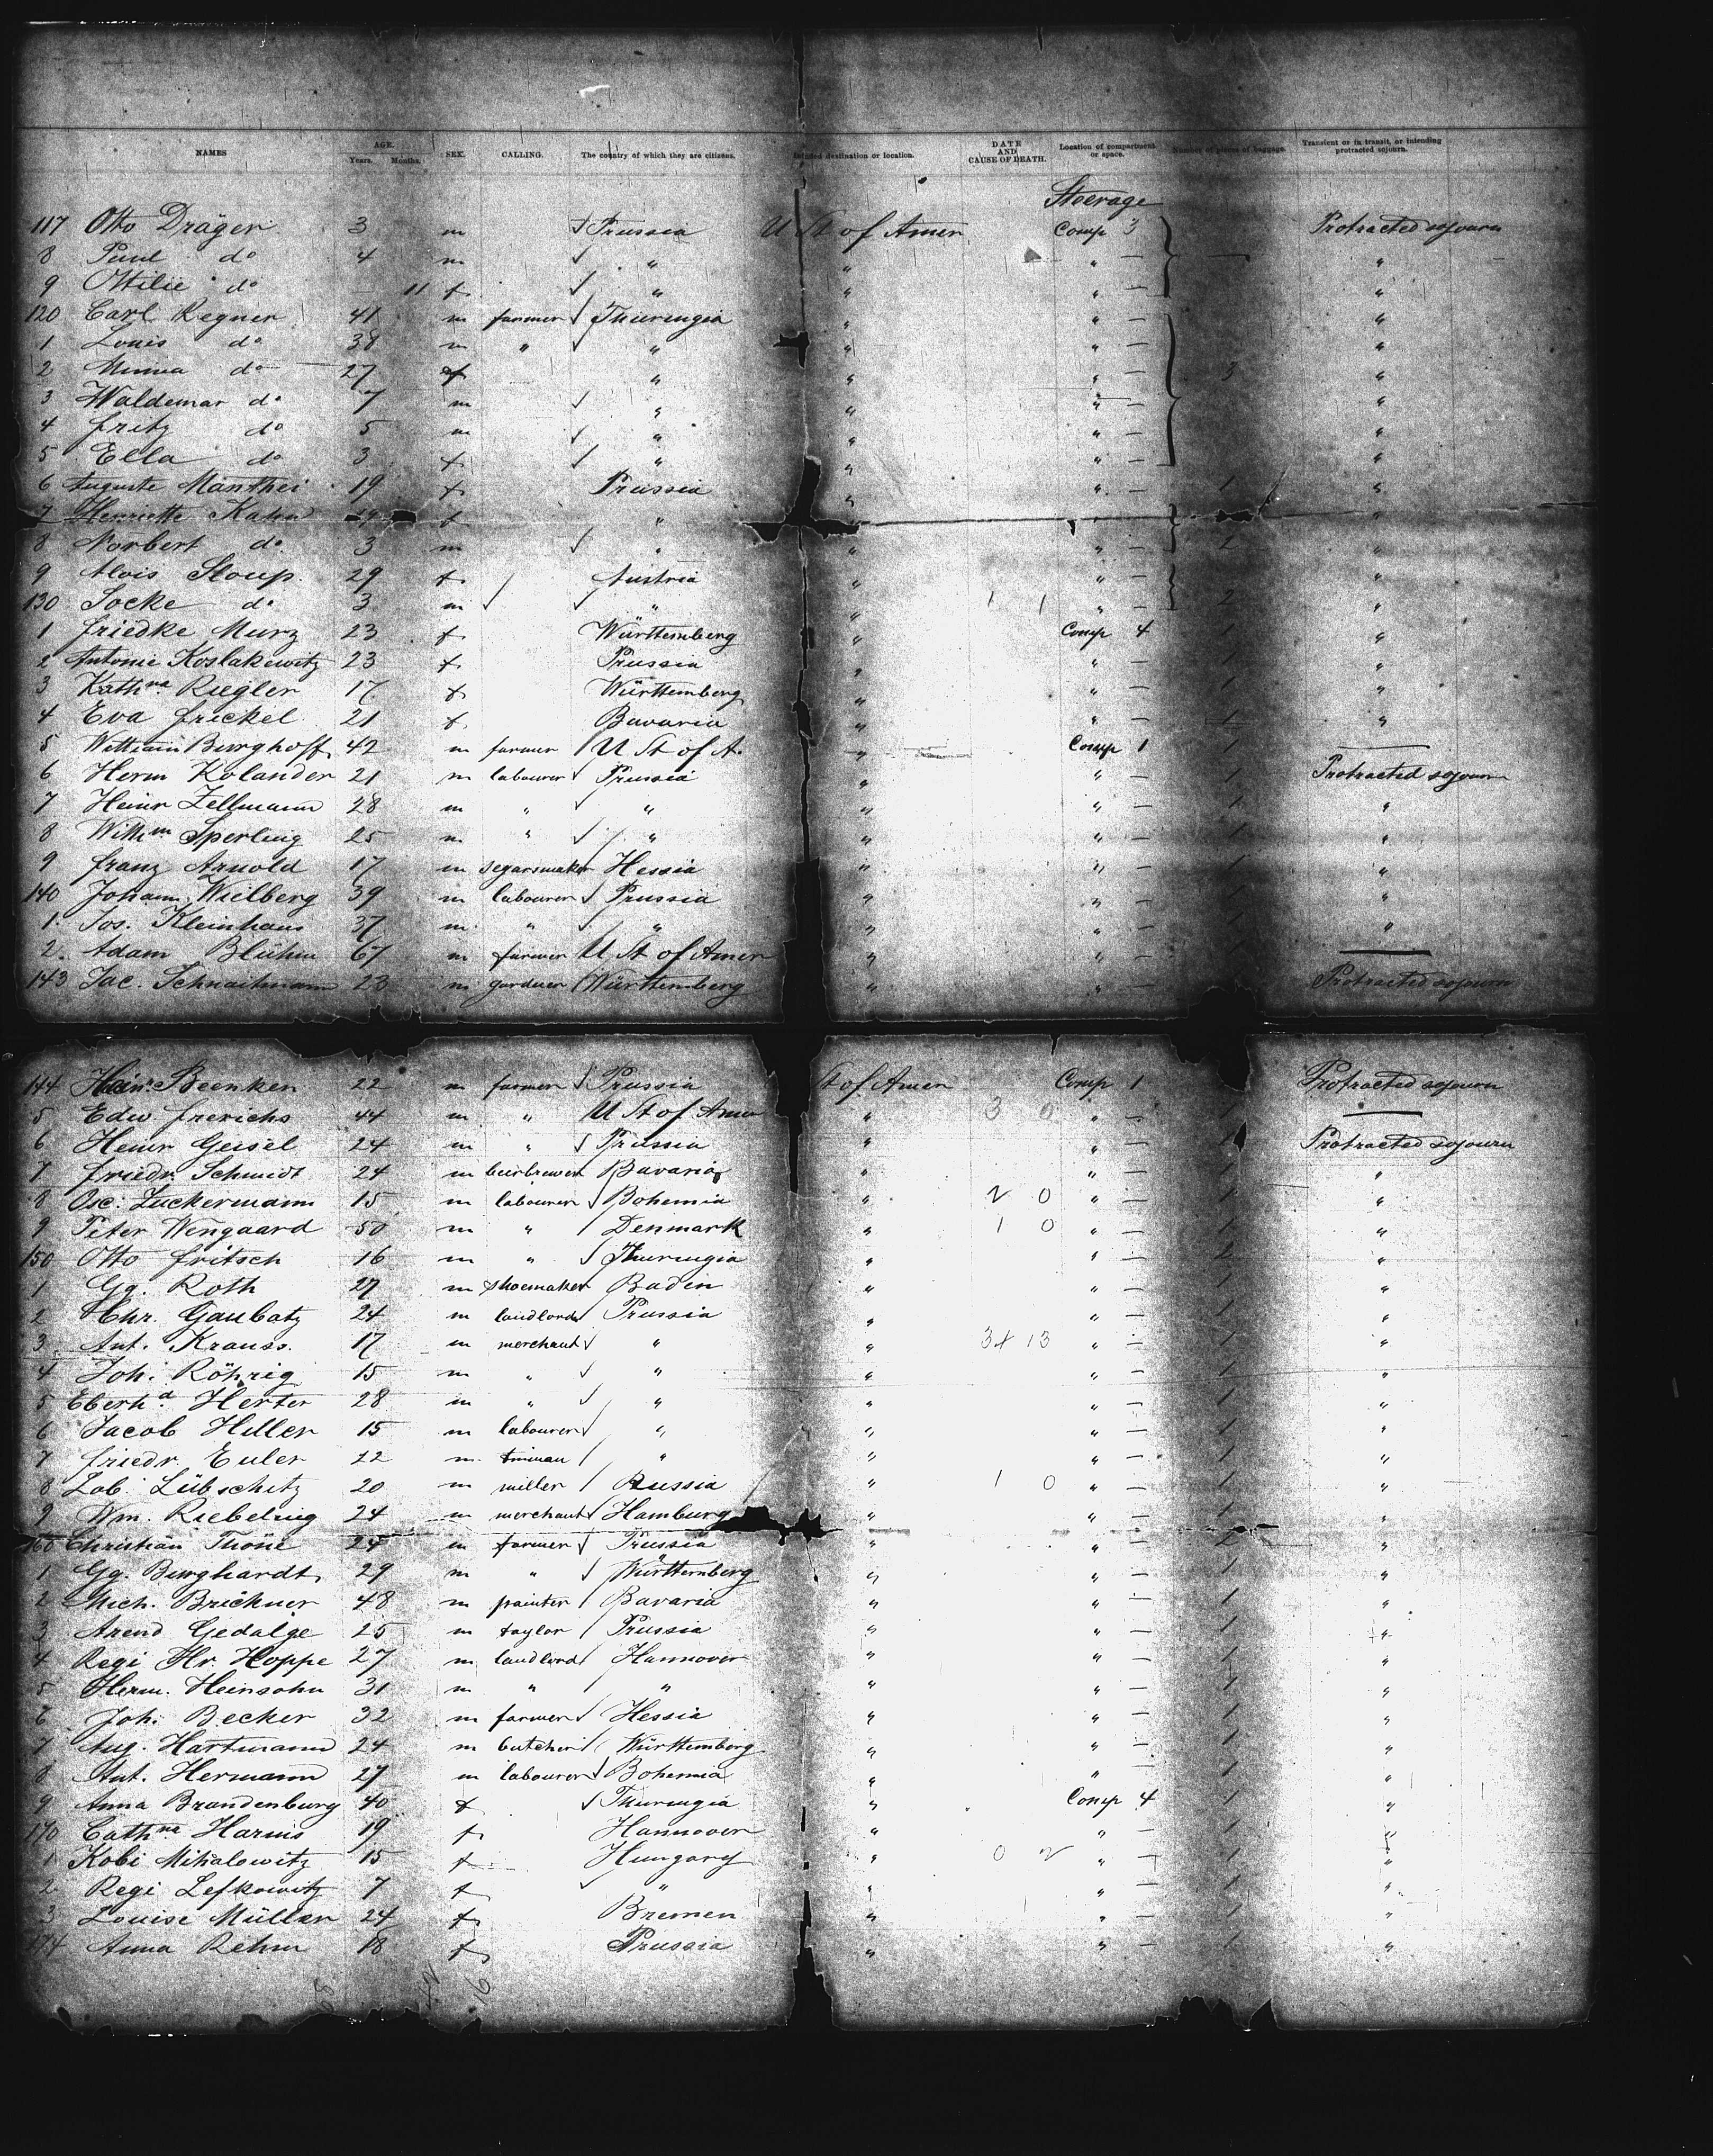 NAMES AGE. Years. Months. SEX. CALLING. The country of which they are citizens. Intended destination or location. DATE AND CAUSE OF DEATH. Location of compartment or space. Number of pieces of baggage. Transient or in transit, or intending protracted sojourn.
Steerage
117 Otto Dräger 3 m Prussia U St of Amer Comp 3 Protracted sojourn
8 Paul do 4 m " " " — — "
9 Ottilie do — 11 f " " " — "
120 Carl Regner 41 m farmer Thuringia " " — "
1 Louis do 38 m " " " " — "
2 Minna do 27 f " " " — 3 "
3 Waldemar do 7 m " " " — "
4 Fritz do 5 m " " " — "
5 Ella do 3 f " " " — "
6 Auguste Manthei 19 f Prussia " " — 1 "
7 Henriette Kahn f " "
8 Norbert do 3 m " " " — 2 "
9 Alois Sloup 29 f Austria " " — "
130 Socke do 3 m " " 1 1 " — 2 "
1 Friedke Murz 23 f Württemberg " Comp 4 1 "
2 Antonie Koslakewitz 23 f Prussia " " — 1 "
3 Kathna Riegler 17 f Württemberg " " — 1 "
4 Eva Frickel 21 f Bavaria " " — 1 "
5 William Burghoff 42 m farmer U St of A. " Comp 1 1 —
6 Herm Kolander 21 m labourer Prussia " " — 1 Protracted sojourn
7 Heinr Zellmann 28 m " " " " — 1 "
8 Willm Sperling 25 m " " " " — 1 "
9 Franz Arnold 17 m segarsmaker Hessia " " — 1 "
140 Johann Wielberg 39 m labourer Prussia " " — "
1 Jos. Kleinhaus 37 m " " " " — 1 "
2. Adam Blühm 67 m farmer U St of Amer " " — —
143 Jac. Schnaitmann 23 m gardner Württemberg " " — Protracted sojourn
144 Heinr. Beenken 22 m farmer Prussia St of Amer Comp 1 Protracted sojourn
5 Edw Frerichs 44 m " U St of Amer " 3 0 " — 1 —
6 Heinr Geisel 24 m " Prussia " " — 1 Protracted sojourn
7 Friedr. Schmidt 24 m beerbrewer Bavaria " " — 1 "
8 Osc. Zuckermann 15 m labourer Bohemia " 2 0 " — 1 "
9 Peter Wengaard 50 m " Denmark " 1 0 " — 1 "
150 Otto Fritsch 16 m " Thuringia " " — 2 "
1 Gg. Roth 27 m shoemaker Baden " " — 1 "
2 Chr. Gaubatz 24 m landlord Prussia " " — 1 "
3 Ant. Krauss. 17 m merchant " " 34 13 " — 1 "
4 Joh. Röhrig 15 m " " " " — 1 "
5 Eberhd. Herter 28 m " " " " — 1 "
6 Jacob Hiller 15 m labourer " " " — 1 "
7 Friedr. Euler 22 m tinman " " " — 1 "
8 Lob. Lübschitz 20 m miller Russia " 1 0 " — 1 "
9 Wm. Riebeling 24 m merchant Hamburg " " — 1 "
160 Christian Thöne 24 m farmer Prussia " " — 2 "
1 Gg. Burghardt 29 m " Württemberg " " — 1 "
2 Mich. Brückner 48 m painter Bavaria " " — 1 "
3 Arend Gedalge 25 m taylor Prussia " " — 1 "
4 Regi Hr. Hoppe 27 m landlord Hannover " " — 1 "
5 Herm. Heinsohn 31 m " " " " — 1 "
6 Joh. Becker 32 m farmer Hessia " " — 1 "
7 Aug. Hartmann 24 m butcher Württemberg " " — 1 "
8 Ant. Hermann 27 m labourer Bohemia " " — 1 "
9 Anna Brandenburg 40 f Thuringia " Comp 4 1 "
170 Cathna Harms 19 f Hannover " " — 1 "
1 Kobi Mihalowitz 15 f Hungary " 0 2 " — 1 "
2 Regi Lefkowitz 7 f " " " — 1 "
3 Louise Müller 24 f Bremen " " — 1 "
174 Anna Rehm 18 f Prussia " " — 1 "